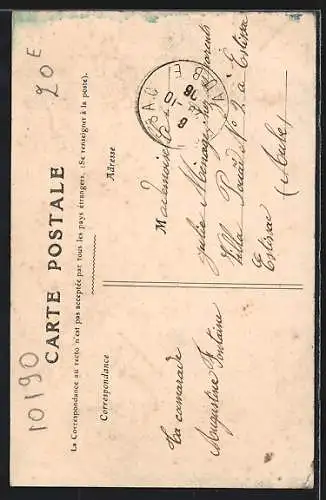 10190
20 E
CARTE POSTALE
La Correspondance au recto n'est pas acceptée par tous les pays étrangers. (Se renseigner à la poste).
Correspondance
Adresse
Ta camarade
Augustine Fontaine
Mademoiselle
Julie chez ses parents
Villa N° 2 à Estissac
Estissac
(Aube)